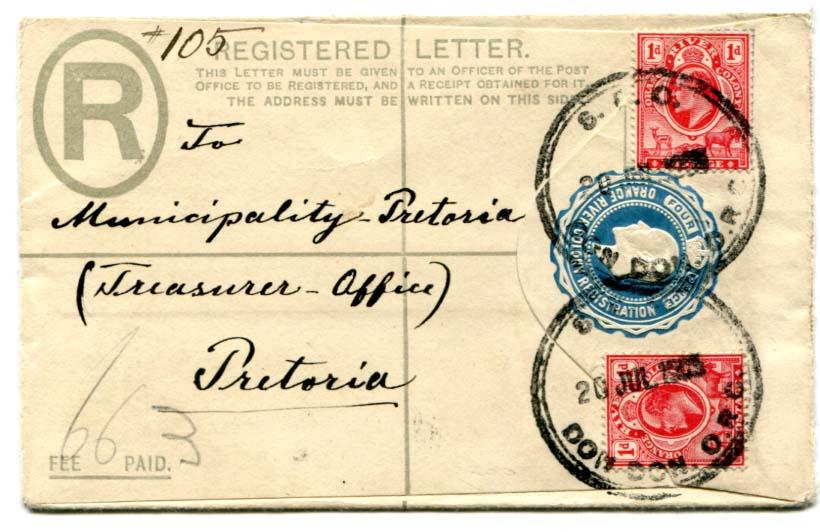 #105
R
REGISTERED LETTER.
THIS LETTER MUST BE GIVEN TO AN OFFICER OF THE POST
OFFICE TO BE REGISTERED, AND A RECEIPT OBTAINED FOR IT.
THE ADDRESS MUST BE WRITTEN ON THIS SIDE
To
Municipality-Pretoria
(Treasurer-Office)
Pretoria
66 3
FEE PAID.
1d RIVER 1d
ORANGE COLONY
FOUR PENCE
ORANGE RIVER COLONY REGISTRATION
20 JUL 1905
O.R.C.
RIVER
ORANGE
1d